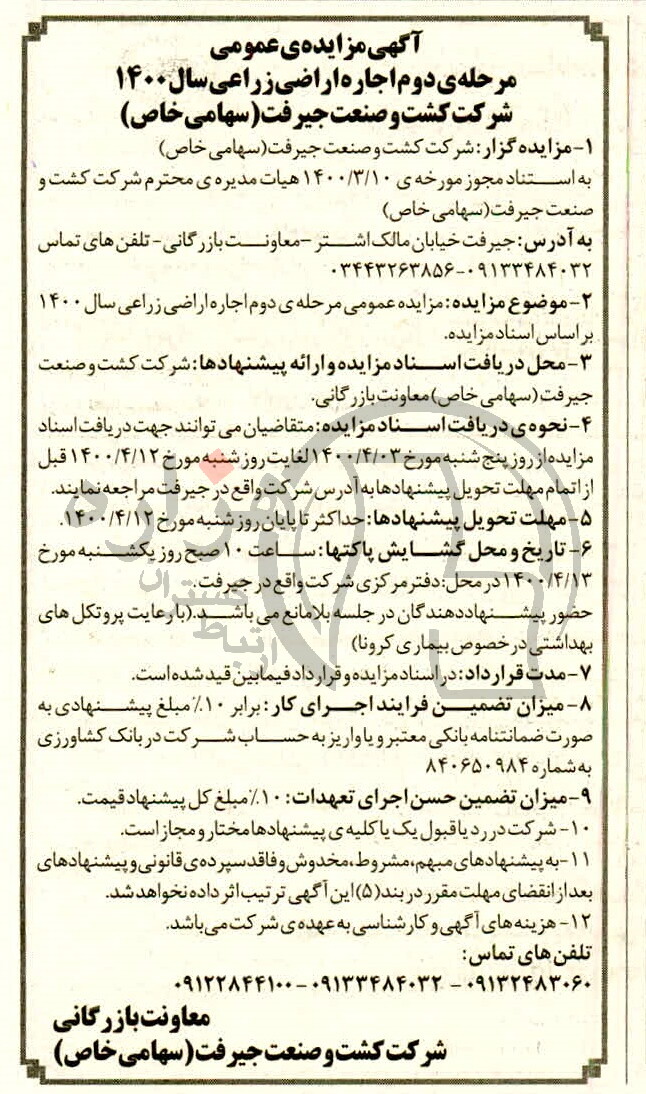 آگهی مزایده‌ی عمومی
مرحله‌ی دوم اجاره اراضی زراعی سال ۱۴۰۰
شرکت کشت و صنعت جیرفت (سهامی خاص)
۱- مزایده گزار: شرکت کشت و صنعت جیرفت (سهامی خاص)
به استناد مجوز مورخه ی ۱۴۰۰/۳/۱۰ هیات مدیره ی محترم شرکت کشت و
صنعت جیرفت (سهامی خاص)
به آدرس: جیرفت خیابان مالک اشتر – معاونت بازرگانی - تلفن های تماس
۰۹۱۳۳۴۸۴۰۳۲-۰۳۴۴۳۲۶۳۸۵۶
۲- موضوع مزایده: مزایده عمومی مرحله ی دوم اجاره اراضی زراعی سال ۱۴۰۰
بر اساس اسناد مزایده.
۳- محل دریافت اسناد مزایده و ارائه پیشنهادها: شرکت کشت و صنعت
جیرفت (سهامی خاص) معاونت بازرگانی.
۴- نحوه ی دریافت اسناد مزایده: متقاضیان می توانند جهت دریافت اسناد
مزایده از روز پنج شنبه مورخ ۱۴۰۰/۴/۰۳ لغایت روز شنبه مورخ ۱۴۰۰/۴/۱۲ قبل
از اتمام مهلت تحویل پیشنهادها به آدرس شرکت واقع در جیرفت مراجعه نمایند.
۵- مهلت تحویل پیشنهادها: حداکثر تا پایان روز شنبه مورخ ۱۴۰۰/۴/۱۲.
۶- تاریخ و محل گشایش پاکتها: ساعت ۱۰ صبح روز یکشنبه مورخ
۱۴۰۰/۴/۱۳ در محل: دفتر مرکزی شرکت واقع در جیرفت.
حضور پیشنهاد دهندگان در جلسه بلامانع می باشد. (با رعایت پروتکل های
بهداشتی در خصوص بیماری کرونا)
۷- مدت قرارداد: در اسناد مزایده و قرارداد فیمابین قید شده است.
۸- میزان تضمین فرایند اجرای کار: برابر ۱۰٪ مبلغ پیشنهادی به
صورت ضمانتنامه بانکی معتبر و یا واریز به حساب شرکت در بانک کشاورزی
به شماره ۸۴۰۶۵۰۹۸۴
۹- میزان تضمین حسن اجرای تعهدات: ۱۰٪ مبلغ کل پیشنهاد قیمت.
۱۰- شرکت در رد یا قبول یک یا کلیه ی پیشنهادها مختار و مجاز است.
۱۱- به پیشنهادهای مبهم، مشروط، مخدوش و فاقد سپرده ی قانونی و پیشنهادهای
بعد از انقضای مهلت مقرر در بند (۵) این آگهی ترتیب اثر داده نخواهد شد.
۱۲- هزینه های آگهی و کارشناسی به عهده ی شرکت می باشد.
تلفن های تماس:
۰۹۱۳۲۴۸۳۰۶۰ - ۰۹۱۳۳۴۸۴۰۳۲ - ۰۹۱۲۲۸۴۴۱۰۰
معاونت بازرگانی
شرکت کشت و صنعت جیرفت (سهامی خاص)
هزاره
گستران
ارتباط